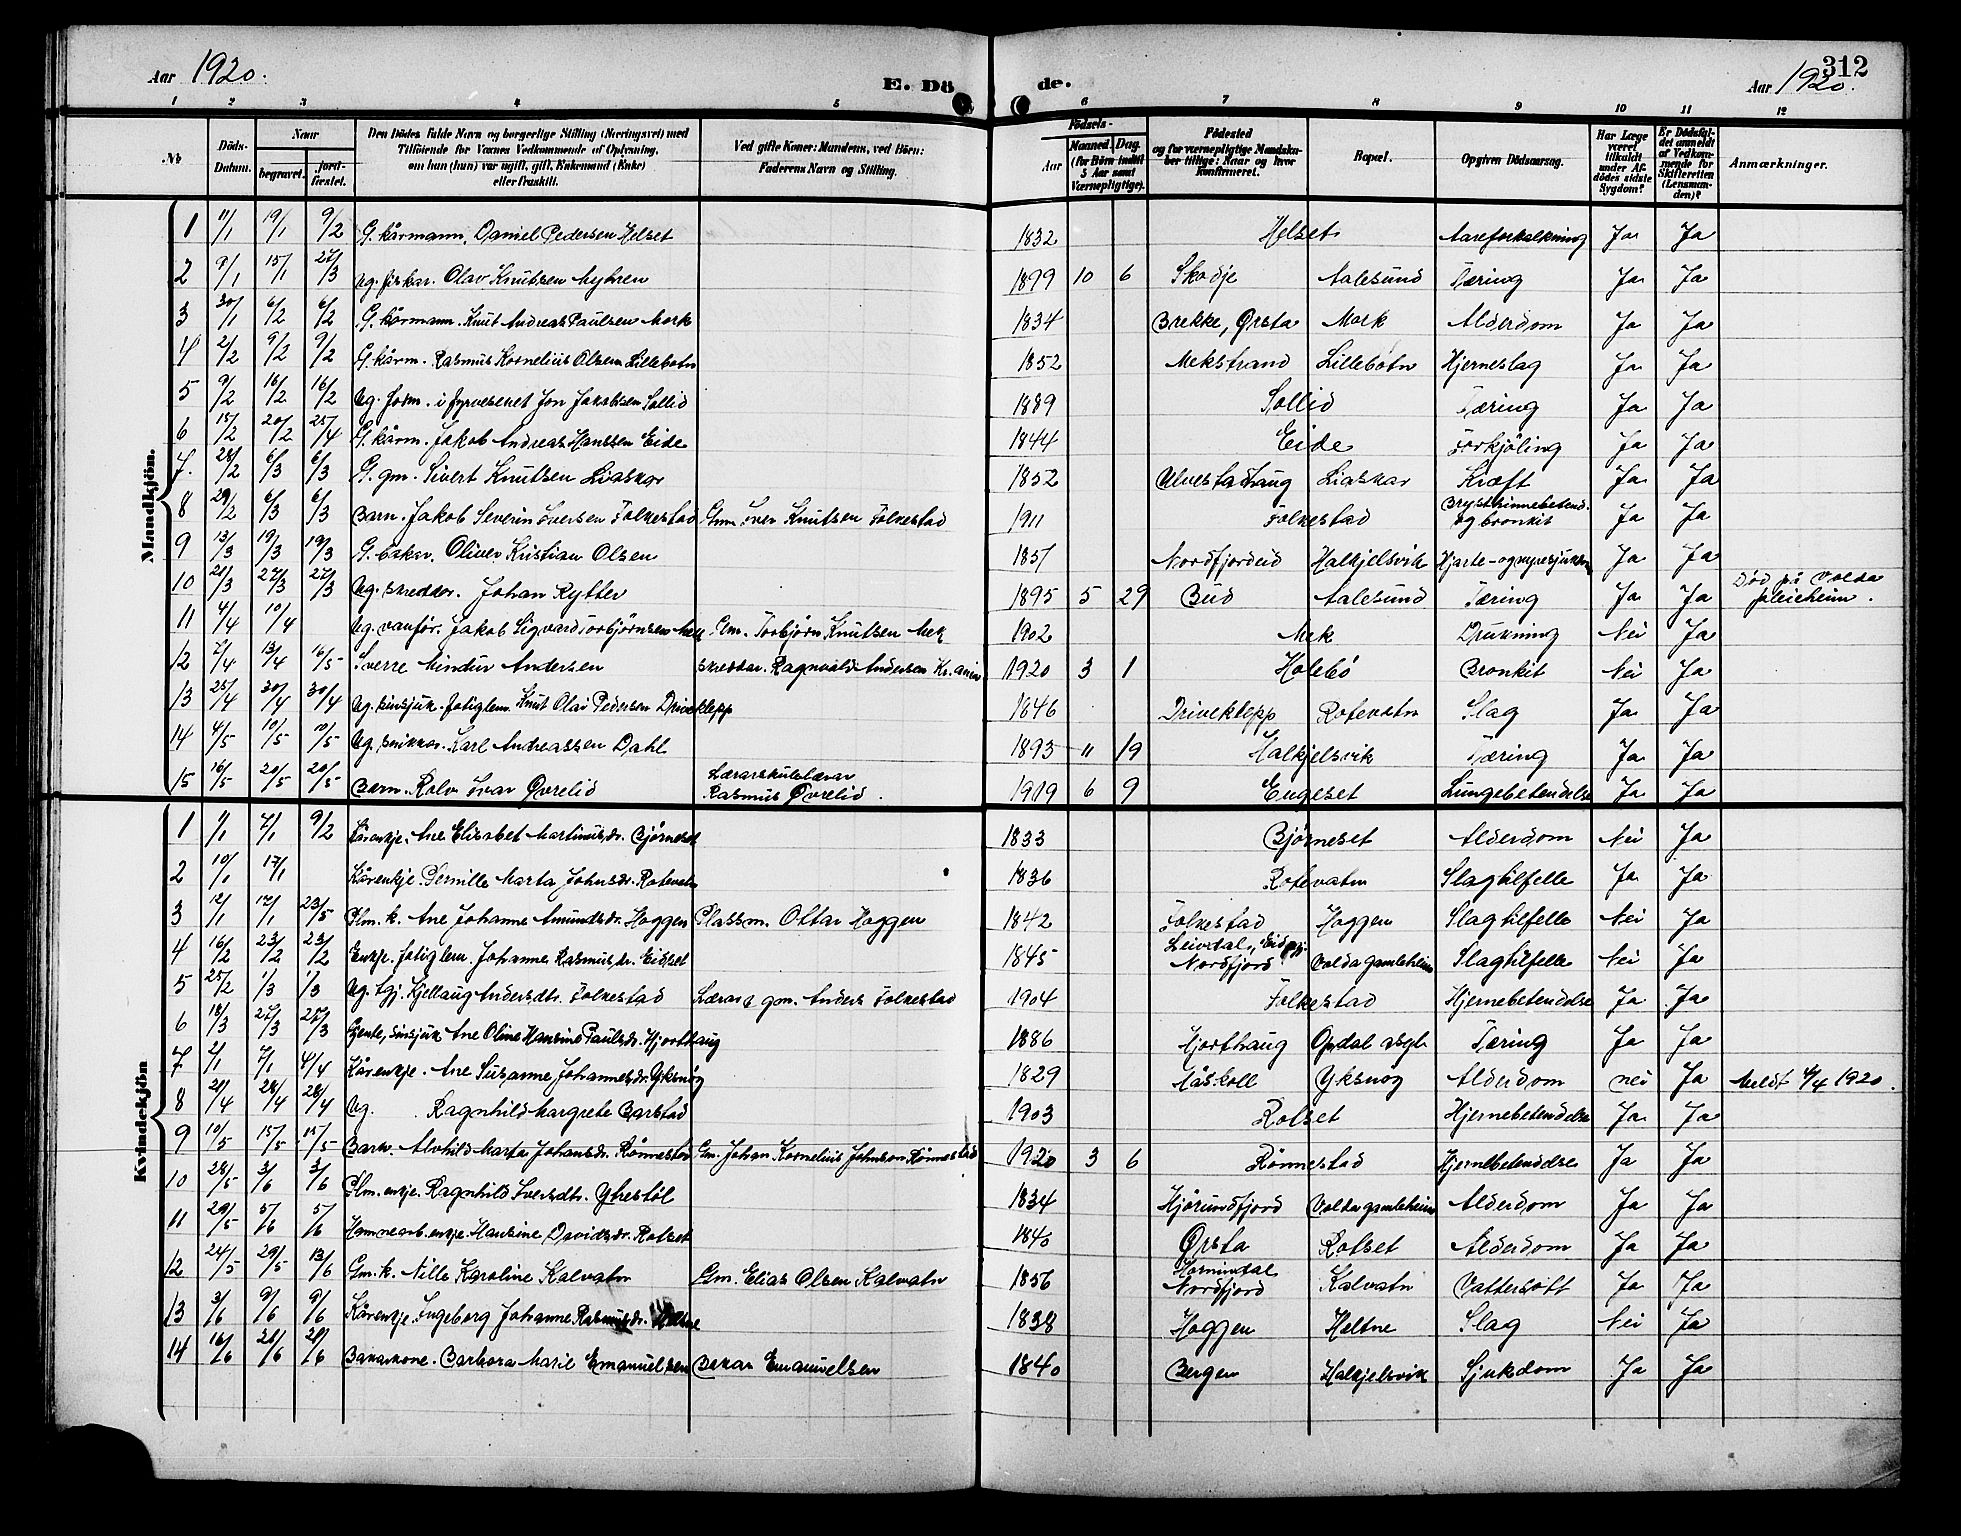 Aar 1920.
E. Dö
de.
Aar 1920.
312
1 2 3 4 5 6 7 8 9 10 11 12
No
Döds-Datum.
Naar
begravet.
jordfæstet.
Den Dödes fulde Navn og borgerlige Stilling (Næringsvei) med
Tilföiende for Voxnes Vedkommende af Oplysning,
om han (hun) var ugift, gift, Enkemand (Enke)
eller fraskilt.
Ved gifte Koner: Mandens, ved Börn:
Faderens Navn og Stilling.
Födsels-
Aar
Maaned. Dag
(for Börn indtil 5 Aar samt Værnepligtige).
Födested
og for værnepligtige Mandskaber tillige: Naar og hvor konfirmeret.
Bopæl.
Opgiven Dödsaarsag.
Har Læge været tilkaldt under Afdödes sidste Sygdom?
Er Dödsfaldet anmeldt af Vedkommende for Skifteretten (Lensmanden)?
Anmærkninger.
Mandkjön.
1 11/1 19/1 9/2 G. kårmann. Daniel Pedersen Helset 1832 Helset Aareforkalkning Ja Ja
2 9/1 15/1 27/3 Ug. fiskar. Olav Knutsen Myhren 1899 10 6 Skodje Aalesund Tæring Ja Ja
3 30/1 6/2 6/2 G. kårmann. Knut Andreas Paulsen Mork 1834 Brekke, Ørsta Mork Alderdom Ja Ja
4 2/2 9/2 9/2 G. kårm. Rasmus Kornelius Olsen Lillebotn 1852 Mekstrand Lillebotn Hjerneslag Ja Ja
5 9/2 16/2 16/2 Ug. form. i fyrvesenet Jon Jakobsen Sollid 1889 Sollid Tæring Ja Ja
6 15/2 20/2 25/4 G. kårm. Jakob Andreas Hanssen Eide 1844 Eide Forkjöling Ja Ja
7 28/2 6/3 6/3 G. gm. Sivert Knutsen Liaskar 1852 Ulvestadhaug Liaskar Kræft Ja Ja
8 29/2 6/3 6/3 Barn. Jakob Severin Iversen Folkestad Gm. Iver Knutsen Folkestad 1911 Folkestad Brysthinnebetend. og bronkit Ja Ja
9 13/3 19/3 19/3 G. bakar. Oliver Kristian Olsen 1857 Nordfjordeid Halkjelsvik Hjarte- og nyresjukdom Ja Ja
10 21/3 27/3 27/3 Ug. skreddar. Johan Rytter 1895 5 29 Bud Aalesund Tæring Ja Ja Död på Volda sjukeheim.
11 4/4 10/4 Ug. vanför. Jakob Sigvard Torbjörnsen Mek Gm. Torbjörn Knutsen Mek 1902 Mek Drukning Nei Ja
12 7/4 13/4 16/5 Sverre Mindur Andersen Skreddar. Ragnvald Andersen Kr.ania 1920 3 1 Holebö Bronkit Nei Ja
13 25/4 30/4 30/4 Ug. sinsjuk. fatiglem. Knut Olai Pedersen Driveklepp 1846 Driveklepp Rotevatn Slag Ja Ja
14 4/5 10/5 10/5 Ug. snikkar. Karl Andreassen Dahl 1893 11 19 Halkjelsvik Tæring Ja Ja
15 16/5 20/5 20/5 Barn. Rolv Ivar Øvrelid Lærarskulelærar Rasmus Øvrelid. 1919 6 9 Engeset Lungebetendelse Ja Ja
Kvindekjön
1 1/1 7/1 9/2 Kårenkje. Ane Elisabet Martinusdr. Bjørneset 1833 Bjørneset Alderdom Nei Ja
2 10/1 17/1 Kårenkje. Pernille Marta Johnsdr. Rotevatn 1836 Rotevatn Slagtilfelle Ja Ja
3 12/1 17/1 23/5 Plm. k. Ane Johanne Amundsdr. Hoggen Plassm. Ottar Hoggen 1842 Folkestad Hoggen Slagtilfelle Nei Ja
4 16/2 23/2 23/2 Enkje. fatiglem. Johanne Rasmusdr. Eidset 1845 Leivdal, Eid pgj. Nordfjord Volda gamleheim Slagtilfelle Nei Ja
5 25/2 1/3 1/3 Ug. tgj. Kjellaug Andersdtr. Folkestad Lærar o gm. Anders Folkestad 1904 Folkestad Hjernebetendelse Ja Ja
6 18/3 27/3 27/3 Gjente, sinsjuk Ane Oline Hansine Paulsdr. Hjorthaug 1886 Hjorthaug Opdal asyl Tæring Ja Ja
7 2/1 7/1 4/4 Kårenkje. Ane Susanne Johannesdr. Yksnöy 1829 Håskoll Yksnöy Alderdom nei Ja Meldt 4/4 1920.
8 21/4 28/4 28/4 Ug. Ragnhild Margrete Barstad 1903 Rotset Hjernebetendelse Ja Ja
9 10/5 15/5 15/5 Barn. Alvhild Marta Johansdr. Rönnestad Gm. Johan Kornelius Johnson Rönnestad 1920 3 6 Rönnestad Hjernebetendelse Ja Ja
10 28/5 3/6 3/6 Plm. enkje. Ragnhild Iversdtr. Ytrestöl 1834 Hjörundfjord Volda gamleheim Alderdom Ja Ja
11 29/5 5/6 5/6 Hamnearb. enkje Hansine Davidsdr. Rotset 1840 Ørsta Rotset Alderdom Ja Ja
12 24/5 29/5 13/6 Gm. k. Nille Karoline Kalvatn Gm. Elias Olsen Kalvatn 1856 Hornindal Nordfjord Kalvatn Vattersott Ja Ja
13 3/6 9/6 9/6 Kårenkje Ingeborg Johanne Rasmusdr. Heltne 1838 Hoggen Heltne Slag Nei Ja
14 16/6 21/6 21/6 Bakarkone. Barbara Marie Emanuelsen Bakar Emanuelsen 1840 Bergen Halkjelsvik Sjukdom Ja Ja